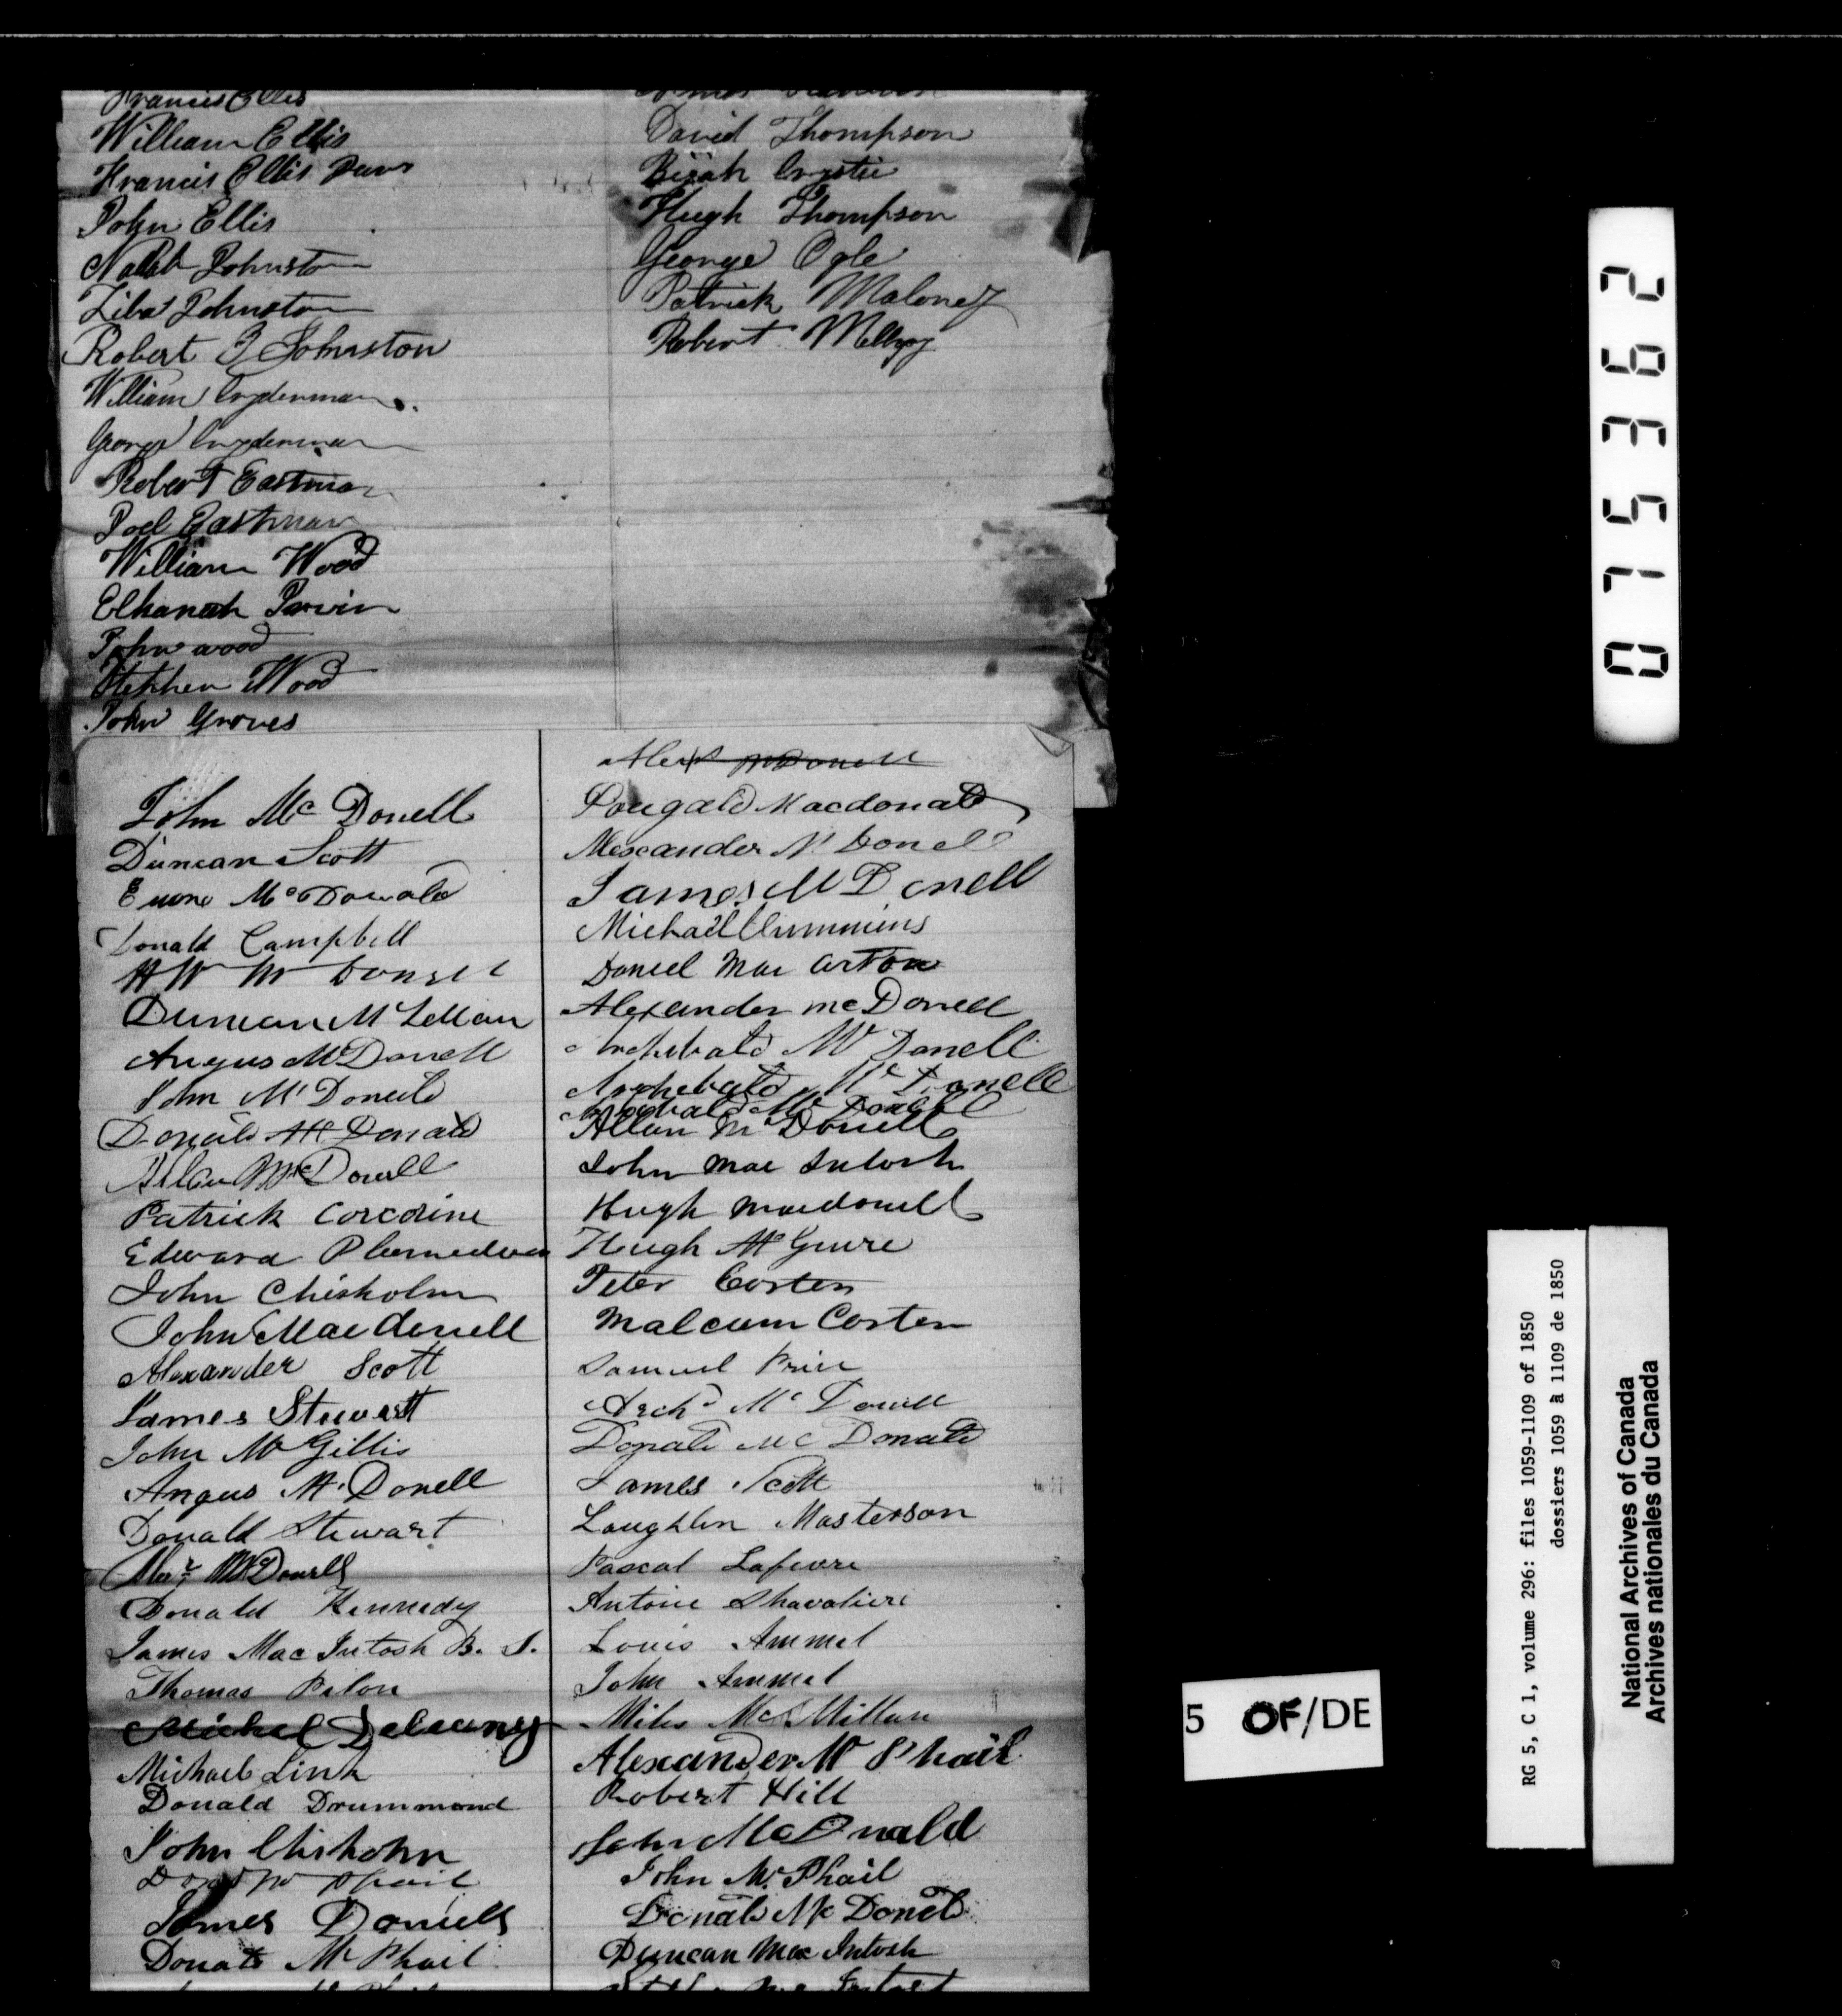 Francis Ellis
William Ellis
Francis Ellis
John Ellis
Johnston
Ziba Johnston
Robert J Johnston
William Cryderman
George Cryderman
Robert Eastman
Joel Eastman
William Wood
Elkanah
John wood
Stephen Wood
John Groves
David Thompson
Hugh Thompson
George Ogle
Patrick Maloney
Robert
John Mc Donell
Duncan Scott
Mc Donald
Donald Campbell
Duncan McLellan
Angus McDonell
John McDoneld
Donald McDonald
Allan McDonell
Patrick Corcorine
Edward
John Chisholm
John Macdonell
Alexander Scott
James Stewart
John McGillis
Angus Mc Donell
Donald Stewart
Alexr McDonell
Donald Kennedy
James Mac Intosh B. S.
Thomas Pilon
Michel Delauney
Michael Link
Donald Drummond
John Chisholm
Phail
James Daniels
Donald McPhail
Alexr McDonell
Dougald Macdonald
Alexander Mc Donell
James McDonell
Michael Cummins
Daniel Mac
Alexander mcDonell
Archibald McDonell
Archebald McDonell
Allan McDonell
John Mac Intosh
Hugh Macdonell
Hugh McGuire
Peter Corten
Malcum Corten
Samuel Price
Archd McDonell
Donald McDonald
James Scott
Laughlin Masterson
Pascal Lafevre
Antoine Shavaliere
Louis Ammel
John Ammel
Miles McMillan
Alexander Mc Phail
Robert Hill
John McDonald
John McPhail
Donald Mc Doneld
Duncan Mac Intosh
Mc Intosh
075362
5 OF/DE
RG 5, C 1, volume 296: files 1059-1109 of 1850
dossiers 1059 à 1109 de 1850
National Archives of Canada
Archives nationales du Canada